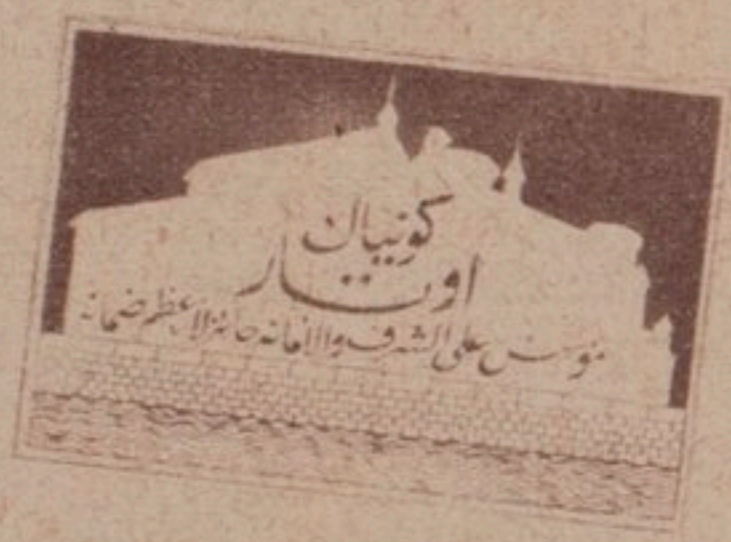 كونيال
اوتار
مؤسس على الشرف والامانه حائز لاعظم ضمانه